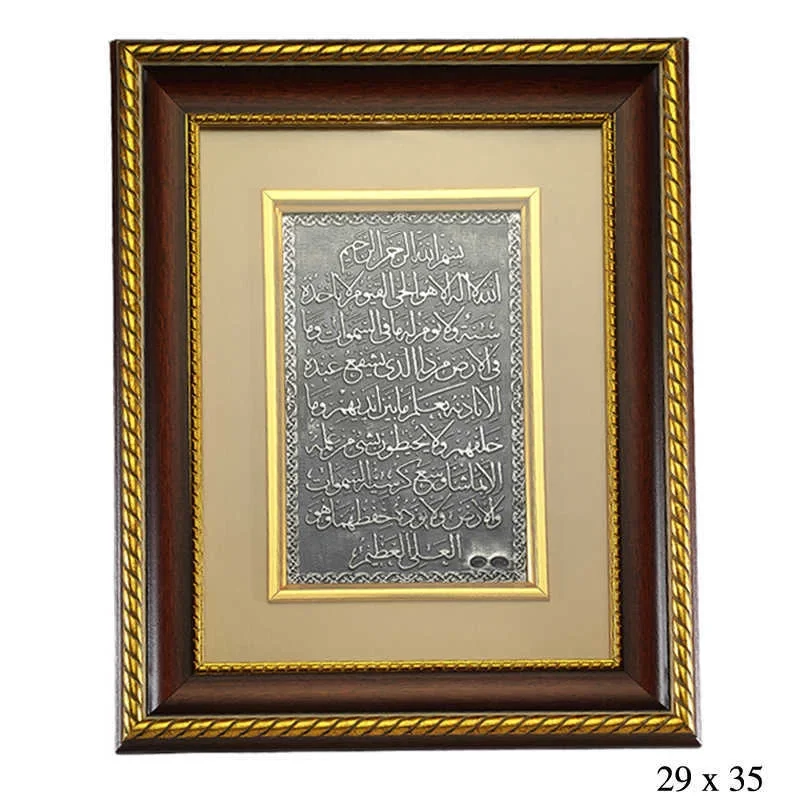 بسم الله الرحمن الرحيم
الله لا اله الا هو الحي القيوم لا تاخذه
سنة ولا نوم له ما في السموات وما
في الارض من ذا الذي يشفع عنده
الا باذنه يعلم ما بين ايديهم وما
خلفهم ولا يحيطون بشئ من علمه
الا بما شا وسع كرسيه السموات
والارض ولا يوده حفظهما وهو
العلى العظيم
29 x 35